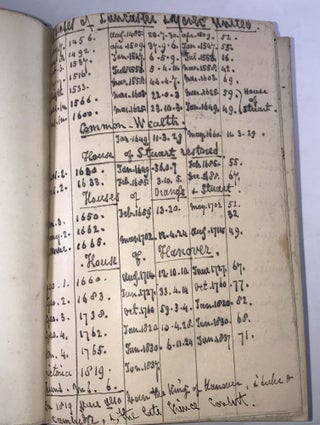 House of Lancaster & York United
1456. Aug.1485 23.7.30. apr.1509 52.
1492. apr.1509 37.9.6. Jan.1547 55
1537. Jan.1547 6.5.9 July.1553 16.
1516. July.1553 5.4.11 Nov.1558 42.
1533. Nov.1558 44.4.7. mar.1603 69.
1566. mar.1603 22.0.3 mar.1625 59 House of
1600. mar.1625 23.10.3. Jan.1649 49 Stuart.
Common-Wealth.
Jan.1649 11.3.29 may.1660 11.3.29.
House of Stuart restored
2. 1630 Jan.1649 36.0.7 Feb.1685. 55.
2. 1633. Feb.1685 3.10.5 67.
Houses of Orange & Stuart
3. 1650. Feb.1689 13.20 may.1702 51.
2. 1662. 32
1665. mar.1702 12.4.24 aug.1714 49.
House of Hanover.
1. 1660. aug.1714 12.10.10 June.1727 67.
2. 1683. Jun.1727 33.4.14 oct.1760 77.
3. 1738. oct.1760 59.3.4. Jan.1820 82.
4. 1762. Jan.1820 10.4.28 Jun.1830 68.
4. 1765. Jun.1830 6.11.24 Jun.1837 71.
1819. Jun.1837
In 1819 were also born the King of Hanover, & Duke of
Cambridge, & the late Prince Consort.